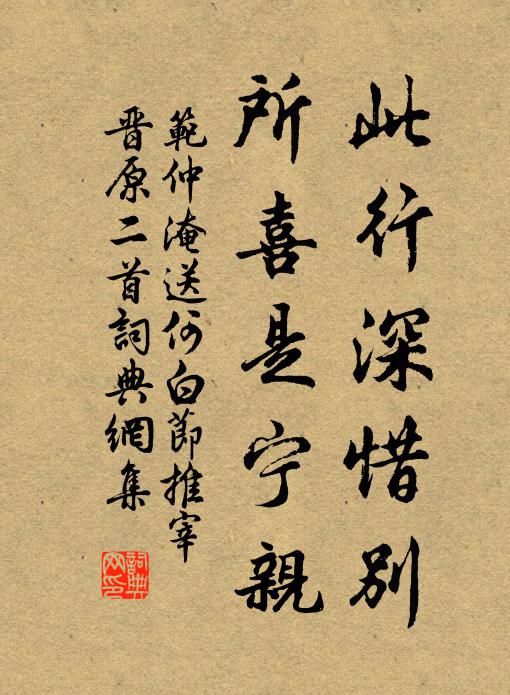 此行深惜别
所喜是宁親
範仲淹送何白節推宰
晋原二首詞典網集
詞典网印